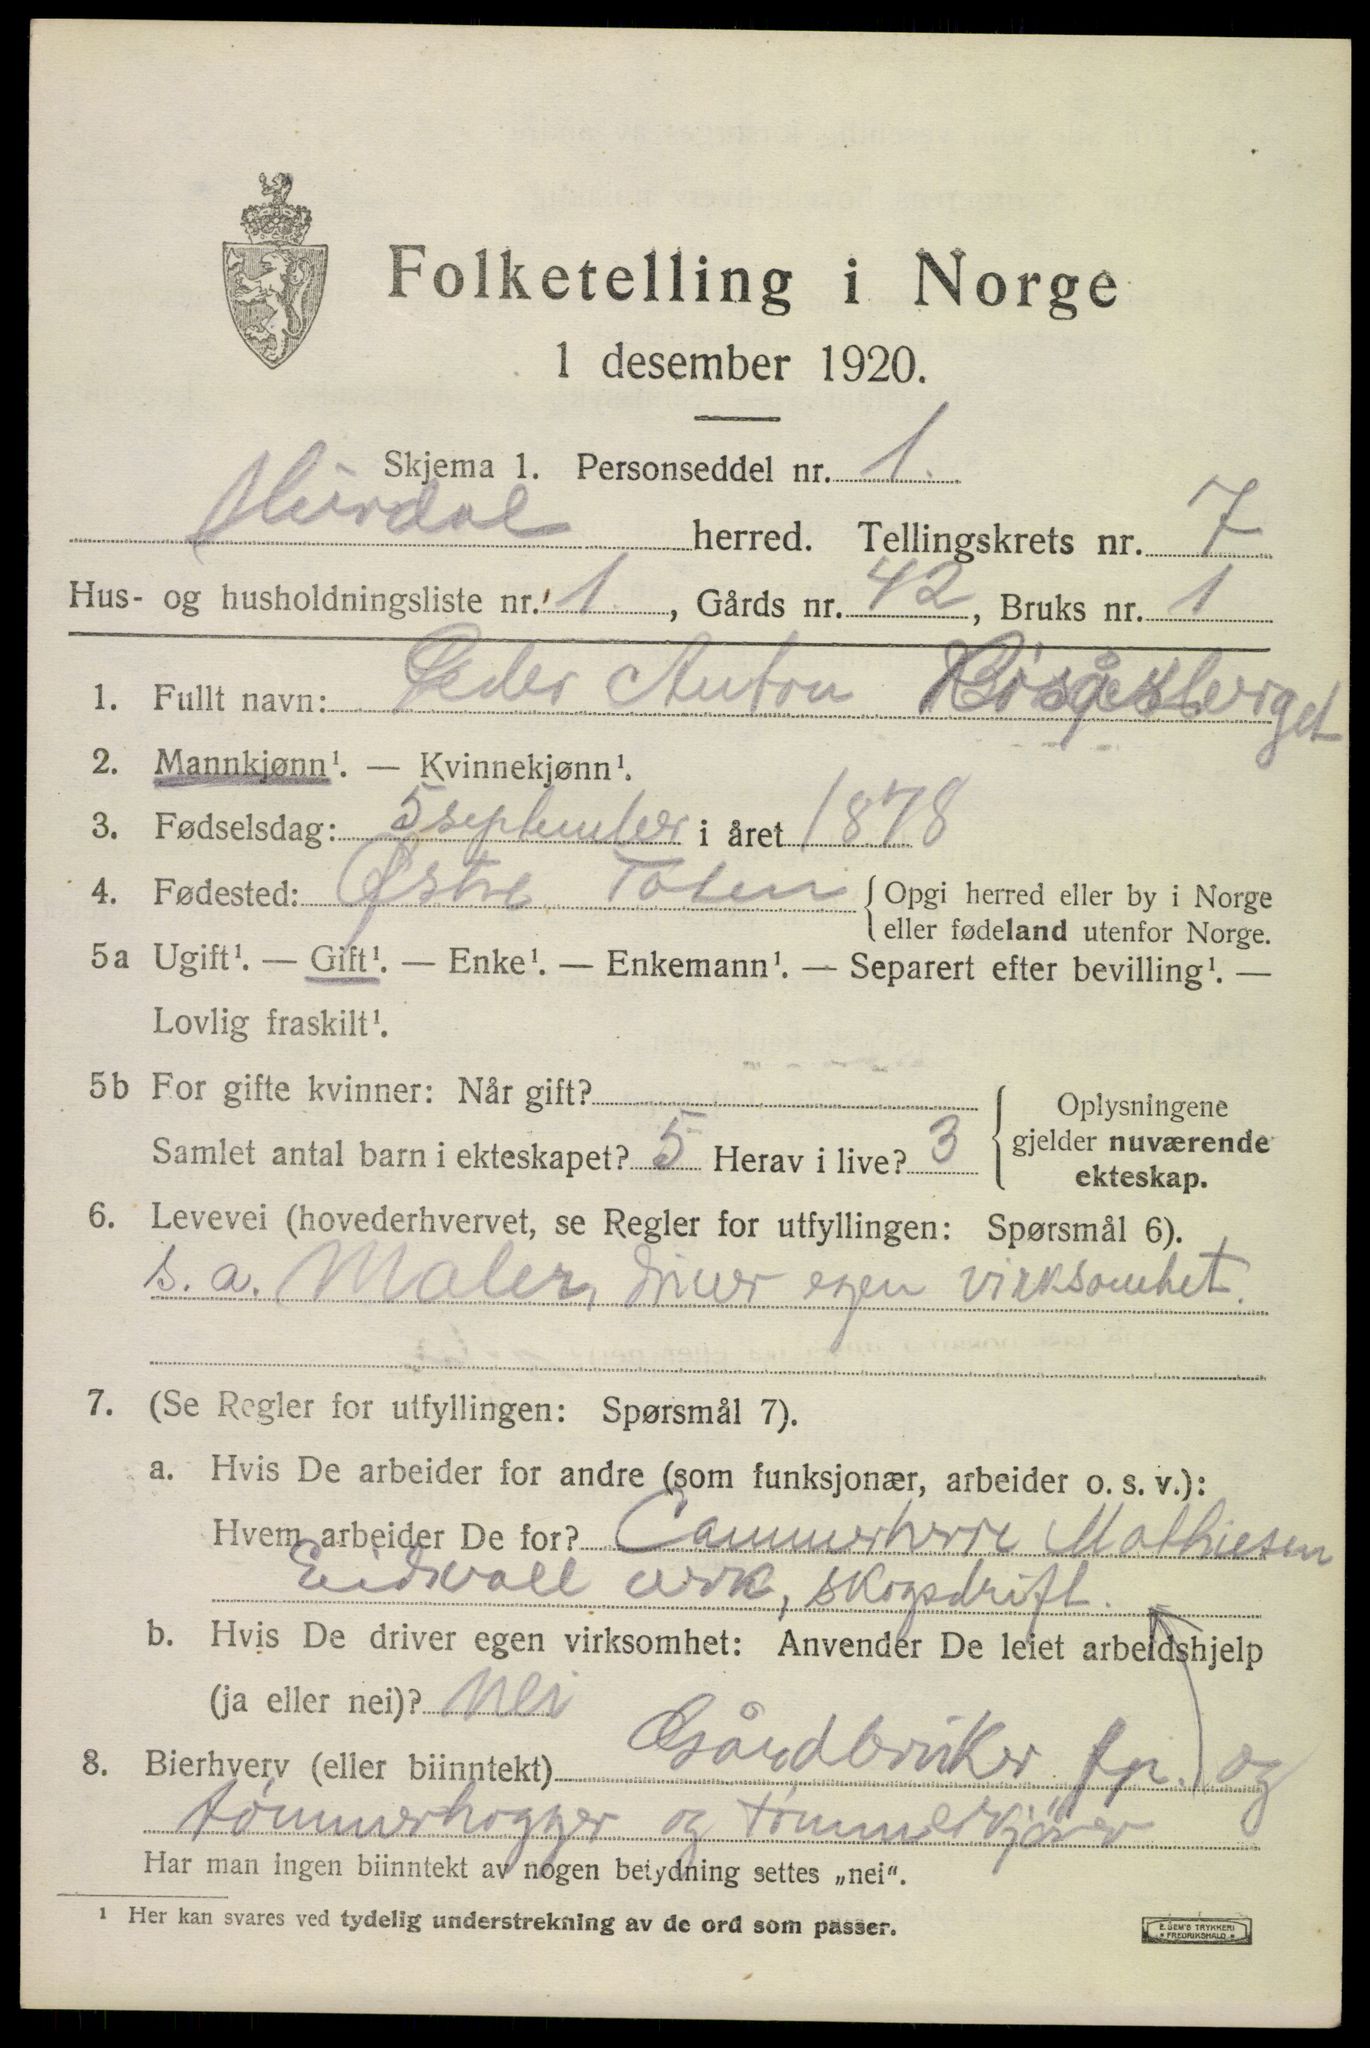 Folketelling i Norge
1 desember 1920.
Skjema 1. Personseddel nr. 1.
Hurdal herred. Tellingskrets nr. 7
Hus- og husholdningsliste nr. 1. , Gårds nr. 42, Bruks nr. 1
1. Fullt navn: Peder Anton
2. Mannkjønn¹. — Kvinnekjønn¹.
3. Fødselsdag: 5 september i året 1878
4. Fødested: Østre Toten {Opgi herred eller by i Norge
eller fødeland utenfor Norge.
5a Ugift¹. — Gift¹. — Enke¹. — Enkemann¹. — Separert efter bevilling¹. —
Lovlig fraskilt¹.
5b For gifte kvinner: Når gift?
Samlet antal barn i ekteskapet? 5 Herav i live? 3
{Oplysningene
gjelder nuværende
ekteskap.
6. Levevei (hovederhvervet, se Regler for utfyllingen: Spørsmål 6).
s. a. Maler, driver egen virksomhet.
7. (Se Regler for utfyllingen: Spørsmål 7).
a. Hvis De arbeider for andre (som funksjonær, arbeider o. s. v.):
Hvem arbeider De for? Cammerherre Mathiesen
Eidsvoll verk, skogsdrift.
b. Hvis De driver egen virksomhet: Anvender De leiet arbeidshjelp
(ja eller nei)? nei
8. Bierhverv (eller biinntekt) Gårdbruker fp. og
tømmerhogger og tømmerkjører
Har man ingen biinntekt av nogen betydning settes „nei“.
¹ Her kan svares ved tydelig understrekning av de ord som passer.
E. SEM'S TRYKKERI
FREDRIKSHALD